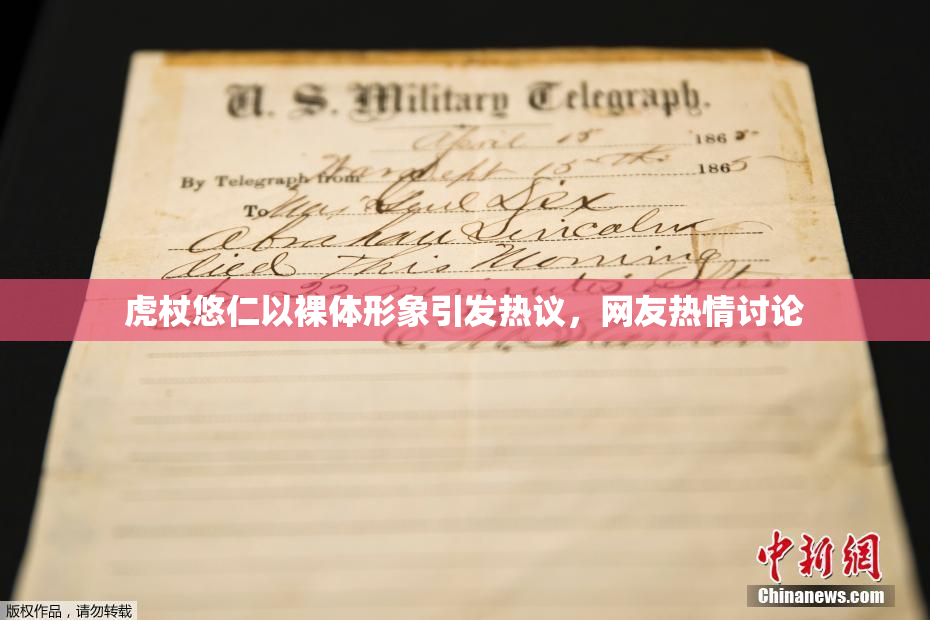 U. S. Military Telegraph.
April 15 1865
By Telegraph from War Dept 15th 1865
To Maj Genl Dix
Abraham Lincoln
died This Morning
at 22 minutes after
虎杖悠仁以裸体形象引发热议，网友热情讨论
中新网
Chinanews.com
版权作品，请勿转载